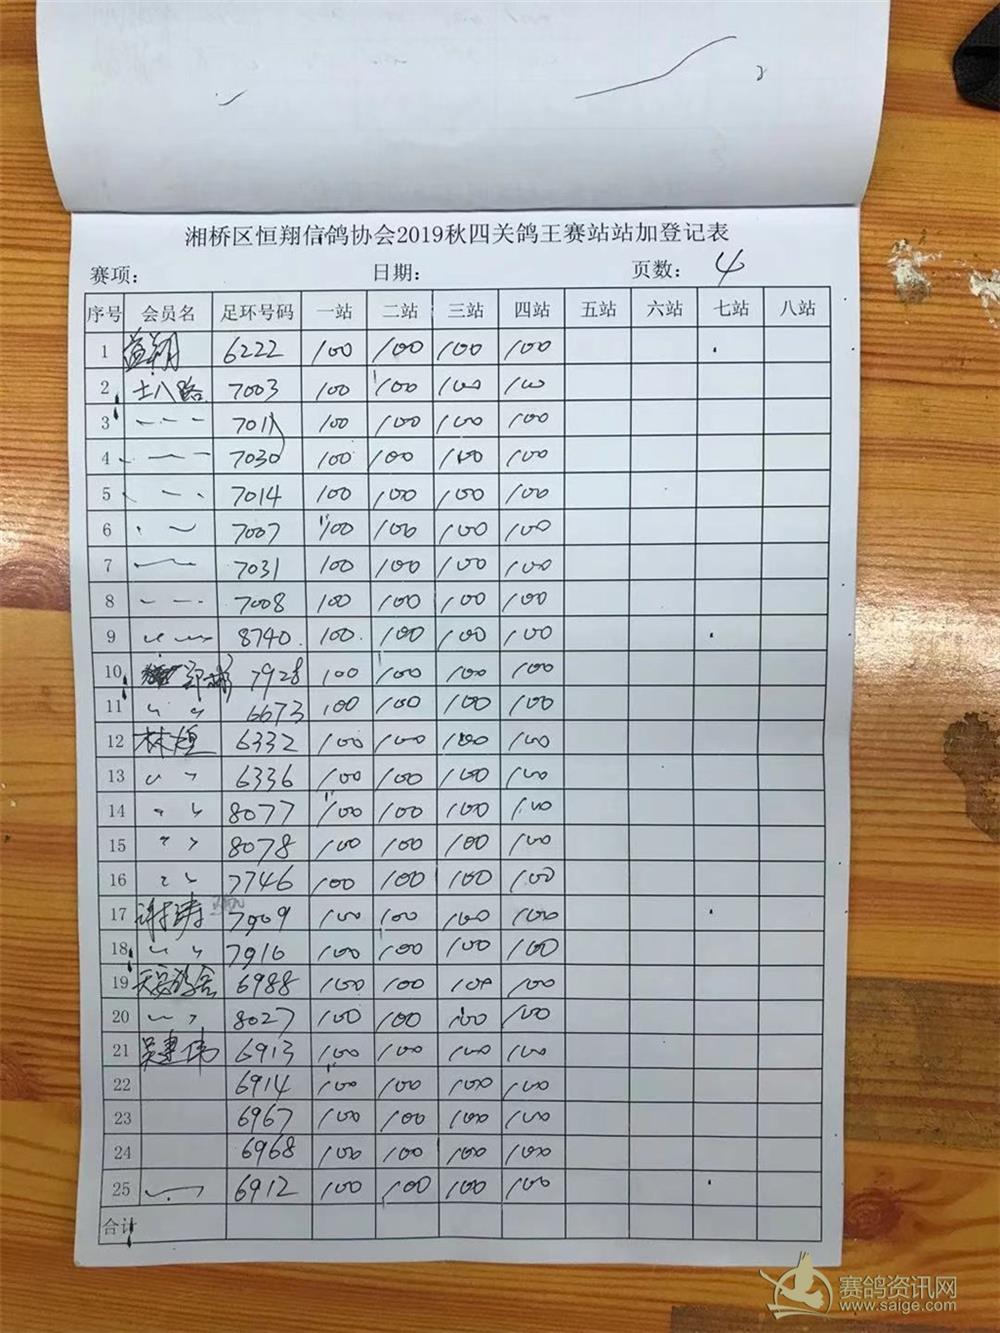 湘桥区恒翔信鸽协会2019秋四关鸽王赛站站加登记表
赛项: 日期: 页数: 4
序号 会员名 足环号码 一站 二站 三站 四站 五站 六站 七站 八站
1 益翔 6222 100 100 100 100
2 士八路 7003 100 100 100 100
3 7011 100 100 100 100
4 7030 100 100 100 100
5 7014 100 100 100 100
6 7007 100 100 100 100
7 7031 100 100 100 100
8 7008 100 100 100 100
9 8740 100 100 100 100
10 7928 100 100 100 100
11 6673 100 100 100 100
12 林煊 6332 100 100 100 100
13 6336 100 100 100 100
14 8077 100 100 100 100
15 8078 100 100 100 100
16 7746 100 100 100 100
17 谢涛 7909 100 100 100 100
18 7916 100 100 100 100
19 天安鸽舍 6988 100 100 100 100
20 8027 100 100 100 100
21 吴建伟 6913 100 100 100 100
22 6914 100 100 100 100
23 6967 100 100 100 100
24 6968 100 100 100 100
25 6912 100 100 100 100
合计
赛鸽资讯网
www.saige.com